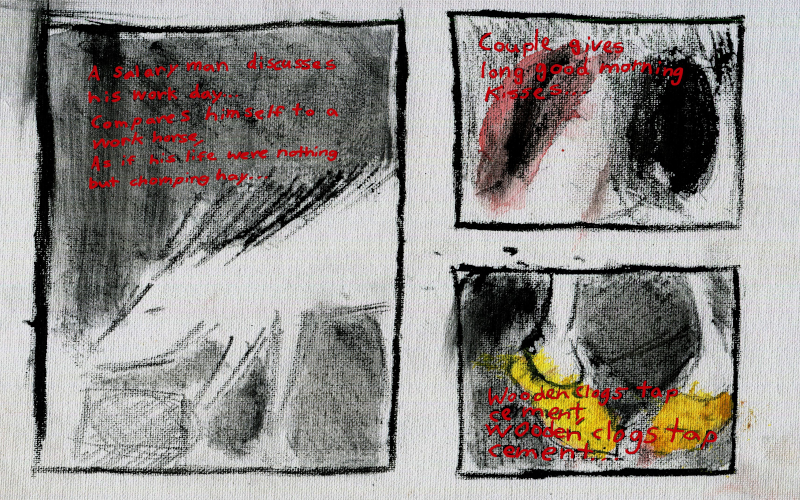 A salary man discusses
his work day...
Compares himself to a
work horse,
As if his life were nothing
but chomping hay...
Couple gives
long good morning
kisses...
Wooden clogs tap
cement,
Wooden clogs tap
cement...